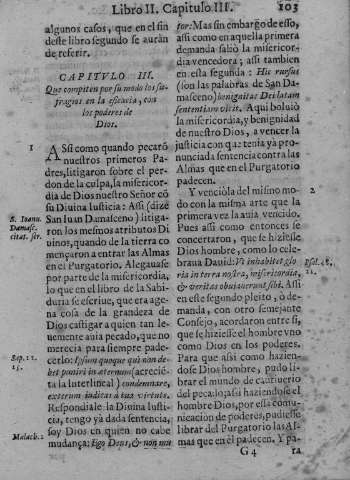 Libro II. Capitulo III. 103
algunos casos, que en el fin
deste libro segundo se auràn
de referir.
CAPITVLO III.
Que compiten por su modo los su-
fragios en la eficacia, con
los poderes de
Dios.
1
ASsi como quando pecarõ
nuestros primeros Pa-
dres, litigaron sobre el per-
don de la culpa, la misericor-
dia de Dios nuestro Señor cõ
su Diuina Iusticia: Assi (dize
S. Ioann.
Damasc.
citat. ser.
San Iuan Damasceno) litiga-
ron los mesmos atributos Di
uinos, quando de la tierra co
mençaron a entrar las Almas
en el Purgatorio. Alegauase
por parte de la misericordia,
lo que en el libro de la Sabi-
duria se escriue, que era age-
na cosa de la grandeza de
Dios castigar a quien tan le-
uemente auia pecado, que no
merecia para siempre pade-
Sap. 12.
15.
cerlo: Ipsum quoque qui non de-
bet puniri in æternum (acrecié-
ta la Interlineal) condemnare,
exterum iudicas à tua virtute.
Respondiale la Diuina Iusti-
cia, tengo yà dada sentencia,
soy Dios en quien no cabe
Malach.
mudança: Ego Deus, & non mu
tor: Mas sin embargo de esso,
assi como en aquella primera
demanda saliò la misericor-
dia vencedora; assi tambien
en esta segunda: Hic rursus
(son las palabras de San Da-
masceno) benignitas Dei latam
sententiam vicit. Aqui boluiò
la misericordia, y benignidad
de nuestro Dios, a vencer la
justicia con que tenia yà pro-
nunciada sentencia contra las
Almas que en el Purgatorio
padecen.
2
Y venciòla del mismo mo-
do con la misma arte que la
primera vez la auia vencido.
Pues assi como entonces se
concertaron, que se hiziesse
Dios hombre, como lo cele-
braua Dauid: Vt inhabitet glo
ria in terra nostra, misericordia,
& veritas obuiauerunt sibi. Assi
en este segundo pleito, ò de-
manda, con otro semejante
Consejo, acordaron entre si,
que se hiziesse el hombre vno
como Dios en los poderes.
Para que assi como hazien-
dose Dios hombre, pudo li-
brar el mundo de cautiuerio
del pecado; assi haziendose el
hombre Dios, por esta comu-
nicacion de poderes, pudiesse
librar del Purgatorio las Al-
mas que en èl padecen. Y pa-
G 4 ra